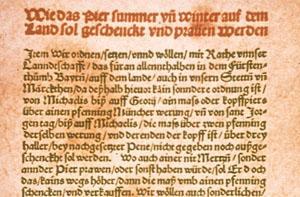 Wie das Pier summer vñ winter auf dem
Land sol geschenckt vnd prauen werden
Item Wir ordnen / setzen / vnnd wöllen / mit Rathe vnnser
Lanndtschafft / das füran allennthalben in dem Fürsten-
thumb Bayrn / auff dem lande / auch in vnsern Stettñ vñ
Märckthen / da deßhalb hieuor kain sonndere ordnung ist /
von Michaelis biß auff Georij / ain mass oder kopffpiers
über ainen pfenning Müncher werung / vñ von sant Jor-
gen tag / biß auff Michaelis / die mass über zwen pfenning
derselben werung / vnd derenden der kopff ist / über drey
haller / bey nachgesetzer Pene / nicht gegeben noch außge-
schenckht sol werden. Wo auch ainer nit Mertzñ / sonder
annder Pier prawen / oder sonst haben würde / sol Er doch
das / kains wegs höher / dann die maß vmb ainen pfenning
schencken / vnd verkauffen. Wir wöllen auch sonderlichen /